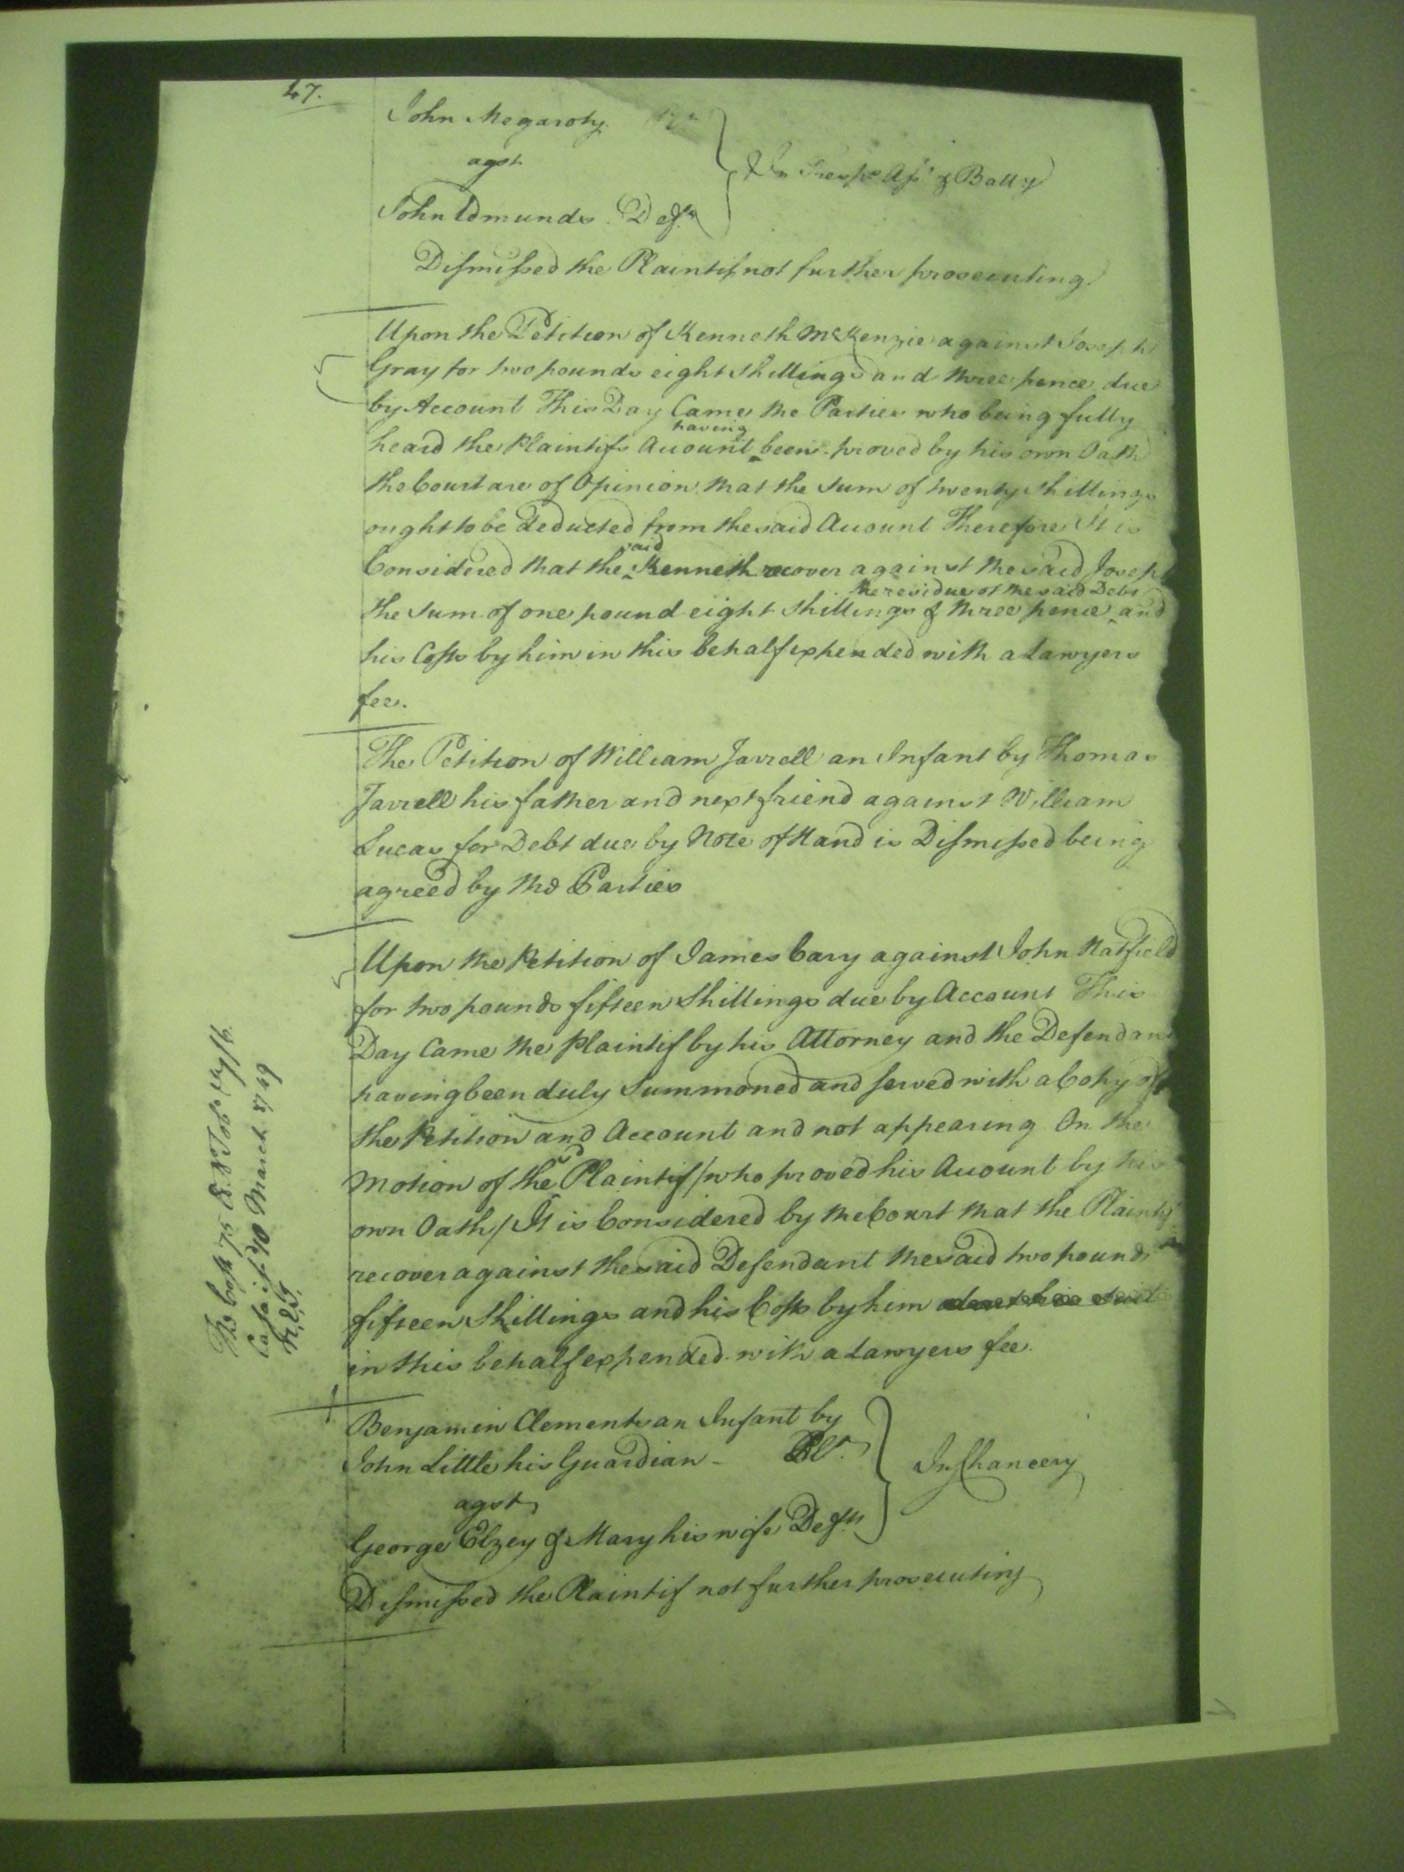 47.
John Megaroty
agst
John Edmunds Deft
In Tresps Asst & Batty
Dismissed the Plaintif not further prosecuting
Upon the Petition of Kenneth McKenzie against Joseph
Gray for two pounds eight shillings and three pence due
by Account This Day Came the Parties who being fully
having
heard the Plaintifs Account been proved by his own Oath
the Court are of Opinion that the sum of twenty shillings
ought to be deducted from the said Account Therefore It is
said
Considered that the Kenneth recover against the said Joseph
the residue of the said Debt
the sum of one pound eight shillings & three pence and
his Costs by him in this behalf expended with a Lawyers
fee.
The Petition of William Jarrell an Infant by Thomas
Jarrell his father and next friend against William
Lucas for Debt due by Note of Hand is Dismissed being
agreed by the Parties
Upon the Petition of James Cary against John Hatfield
for two pounds fifteen shillings due by Account This
Day Came the Plaintif by his Attorney and the Defendant
having been duly Summoned and served with a Copy of
the Petition and Account and not appearing On the
Motion of the sd Plaintif /who proved his Account by his
own Oath/ It is Considered by the Court that the Plaintif
recover against the said Defendant the said two pounds
fifteen shillings and his Costs by him
in this behalf expended with a Lawyers fee.
The Costs 75
Ca sa issd 10 March 1749
Benjamin Clements an Infant by
John Little his Guardian - Plt.
agst
George Elzey & Mary his wife Defts
In Chancery
Dismissed the Plaintif not further prosecuting